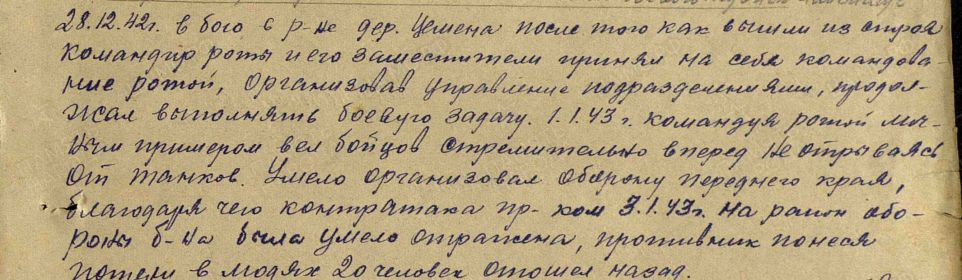 28.12.42г. в бою в р-не дер. Цемена после того как вышли из строя
командир роты и его заместители принял на себя командова-
ние ротой, организовав управление подразделениями, продол-
жал выполнять боевую задачу. 1.1.43 г. командуя ротой лич-
ным примером вел бойцов стремительно вперед не отрываясь
от танков. Умело организовал оборону переднего края,
благодаря чего контратака пр-ком 3.1.43г. на район обо-
роны б-на была умело отражена, противник понеся
потери в людях 20 человек отошел назад.